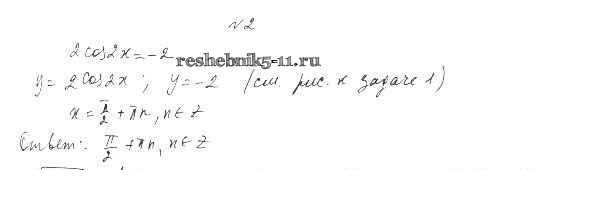 №2
2cos2x=-2
reshebnik5-11.ru
y= 2cos2x ; y=-2 (см. рис. к задаче 1)
x = π/2 + πn, n∈Z
Ответ: π/2 + πn, n∈Z